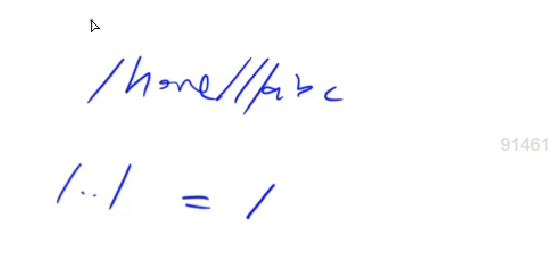 /home///abc
91461
/../ = /